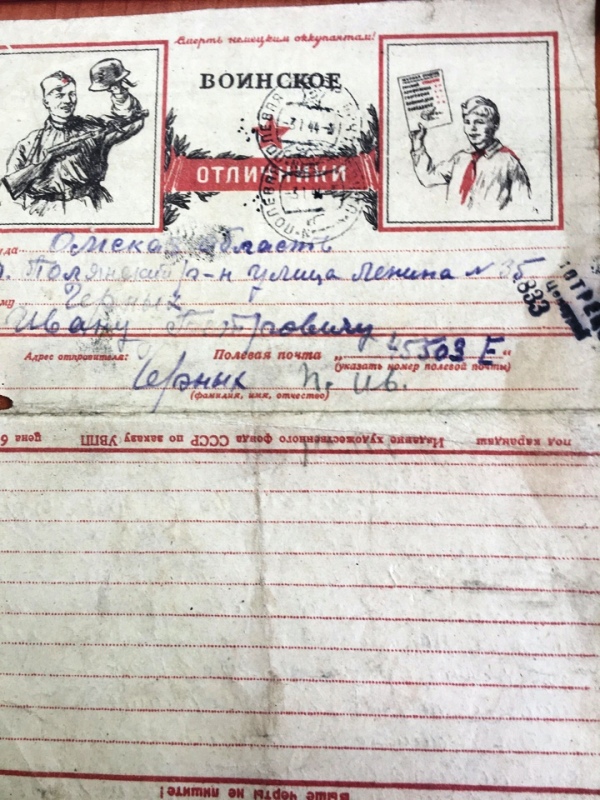 Смерть немецким оккупантам!
ВОИНСКОЕ
ОТЛИЧНИКИ
уда Омская область
Полянский р-н улица Ленина N 35
ому Черных
Ивану Петровичу
Адрес отправителя: Полевая почта „45503 Е“
(указать номер полевой почты)
Черных П. Ив.
(фамилия, имя, отчество)
833
под карандаш Издание художественного фонда СССР по заказу УВПП цена 6
Выше черты не пишите!